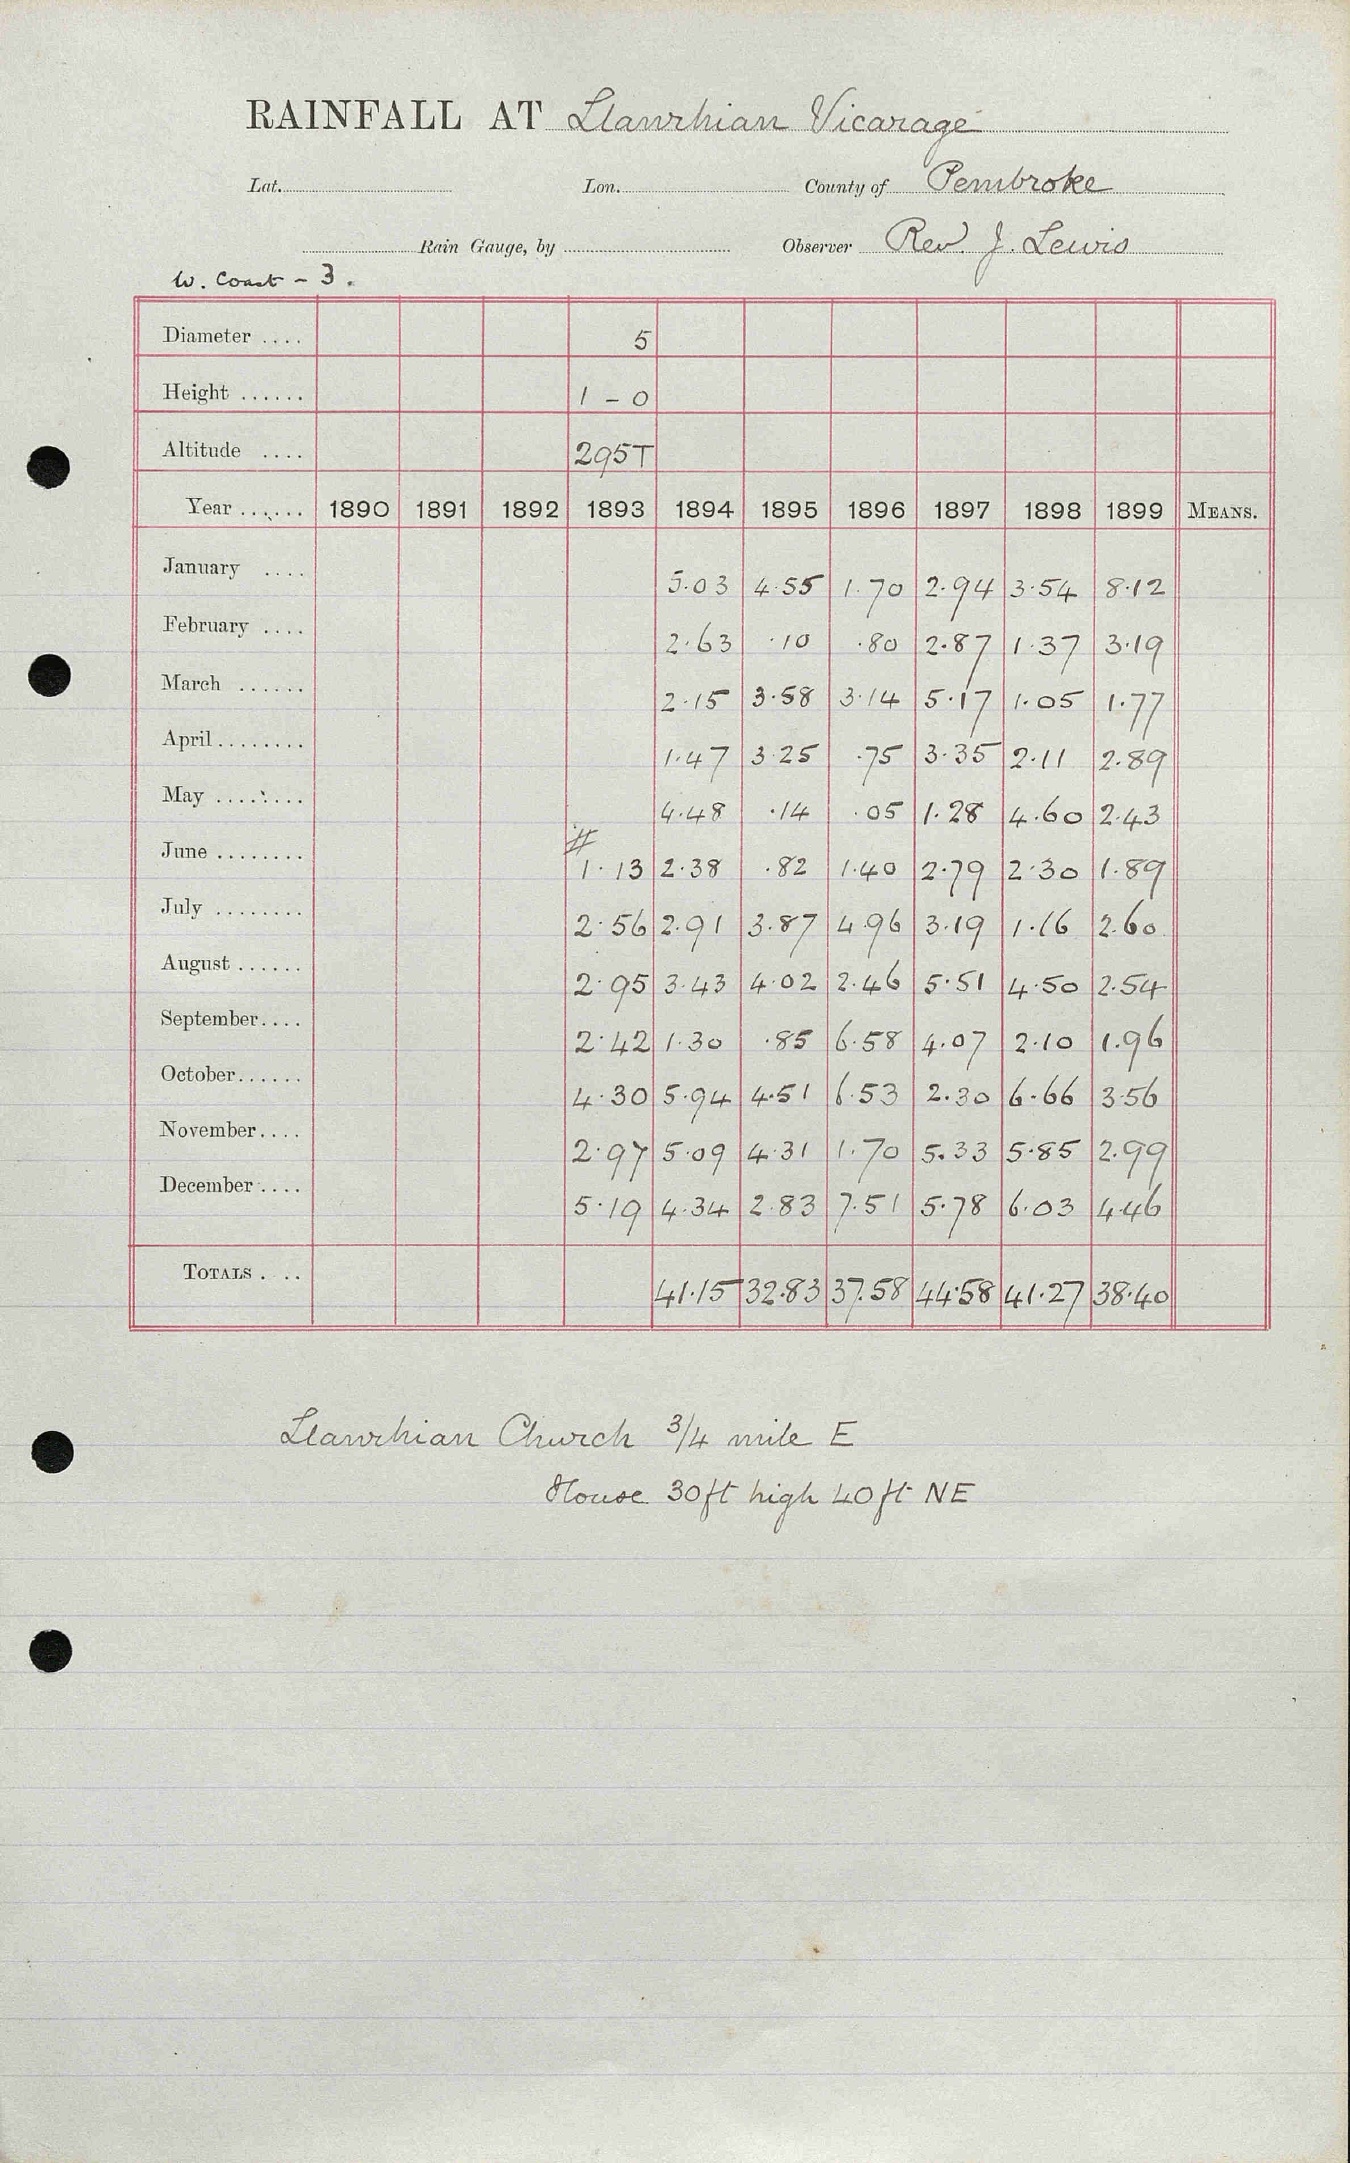 RAINFALL AT Llanrhian Vicarage
Lat. Lon. County of Pembroke
Rain Gauge, by Observer Rev. J. Lewis
W. Coast - 3.
Diameter .... 5
Height ...... 1 - 0
Altitude .... 295T
Year ...... 1890 1891 1892 1893 1894 1895 1896 1897 1898 1899 MEANS.
January .... 5.03 4.55 1.70 2.94 3.54 8.12
February .... 2.63 .10 .80 2.87 1.37 3.19
March ...... 2.15 3.58 3.14 5.17 1.05 1.77
April ........ 1.47 3.25 .75 3.35 2.11 2.89
May ........ 4.48 .14 .05 1.28 4.60 2.43
#
June ........ 1.13 2.38 .82 1.40 2.79 2.30 1.89
July ........ 2.56 2.91 3.87 4.96 3.19 1.16 2.60
August ...... 2.95 3.43 4.02 2.46 5.51 4.50 2.54
September.... 2.42 1.30 .85 6.58 4.07 2.10 1.96
October...... 4.30 5.94 4.51 6.53 2.30 6.66 3.56
November.... 2.97 5.09 4.31 1.70 5.33 5.85 2.99
December.... 5.19 4.34 2.83 7.51 5.78 6.03 4.46
TOTALS . .. 41.15 32.83 37.58 44.58 41.27 38.40
Llanrhian Church 3/4 mile E
House 30ft high 40ft NE